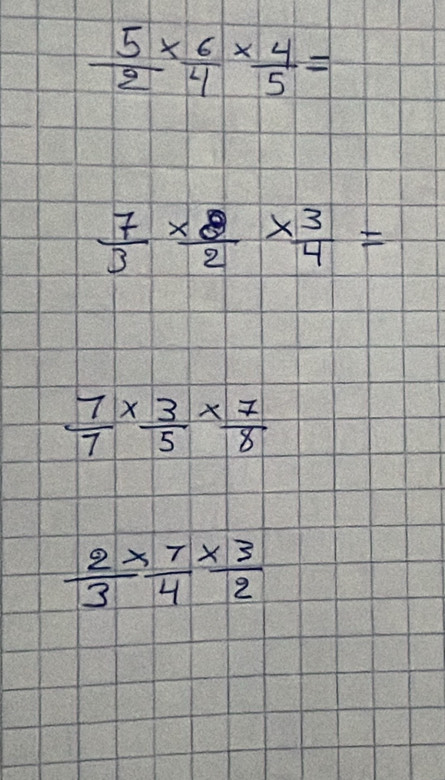 5/2 × 6/4 × 4/5 =
7/3 × 8/2 × 3/4 =
7/7 × 3/5 × 7/8
2/3 × 7/4 × 3/2